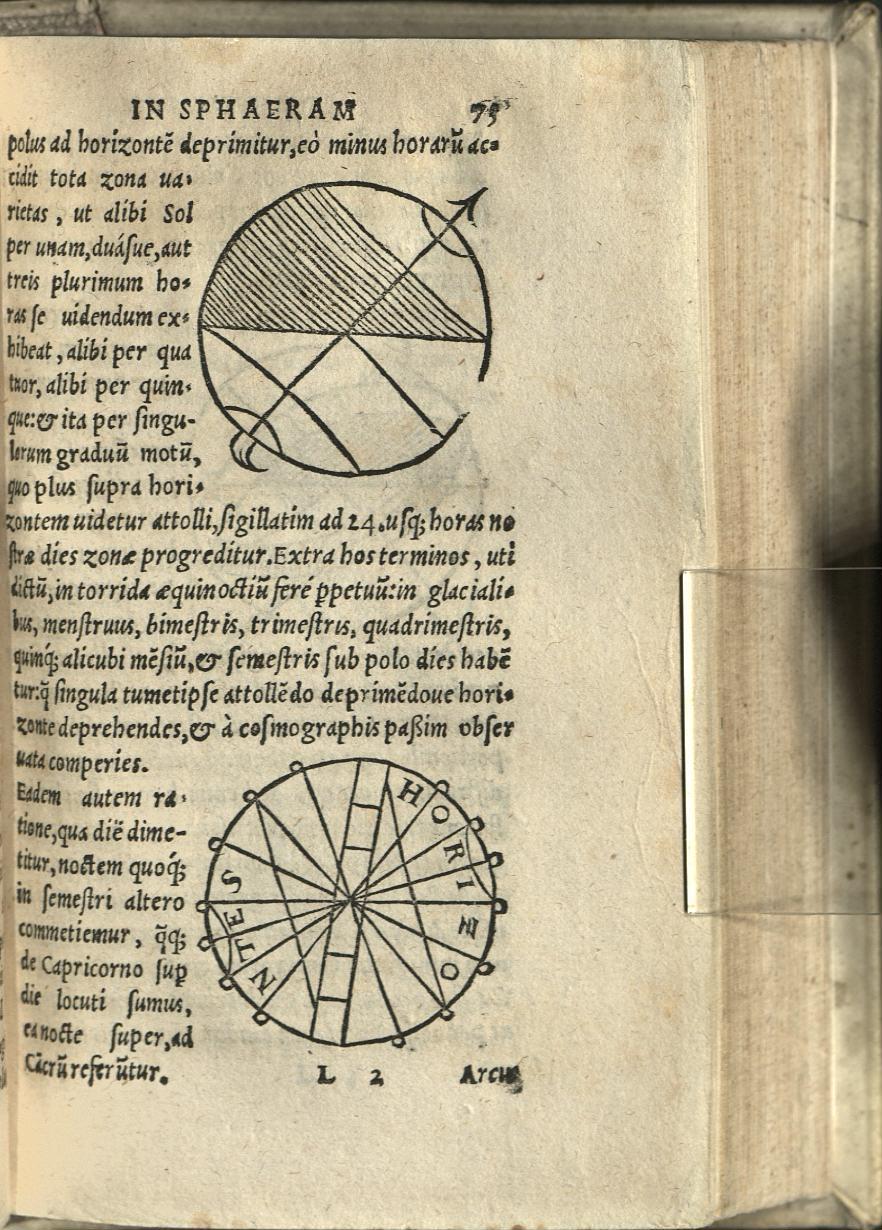 IN SPHAERAM 75
polus ad horizontē deprimitur, eò minus horarū ac-
cidit tota zona ua-
rietas, ut alibi Sol
per unam, duásue, aut
treis plurimum ho-
ras se uidendum ex-
hibeat, alibi per qua
tuor, alibi per quin-
que: & ita per singu-
lorum graduū motū,
quo plus supra hori-
zontem uidetur attolli, sigillatim ad 24. usq; horas no
stræ dies zonæ progreditur. Extra hos terminos, uti
dictū, in torrida æquinoctiū feré ꝑpetuū: in glaciali-
bus, menstruus, bimestris, trimestris, quadrimestris,
quinq́; alicubi mēsiū, & semestris sub polo dies habē
tur: q̄ singula tumetipse attollēdo deprimēdoue hori-
zonte deprehendes, & à cosmographis paßim obser
uata comperies.
Eadem autem ra-
tione, qua diē dime-
titur, noctem quoq́;
in semestri altero
commetiemur, q̄q;
de Capricorno suꝑ
die locuti sumus,
ea nocte super, ad
Cācrū referūtur.
HORIZONTES
L 2 Arcus